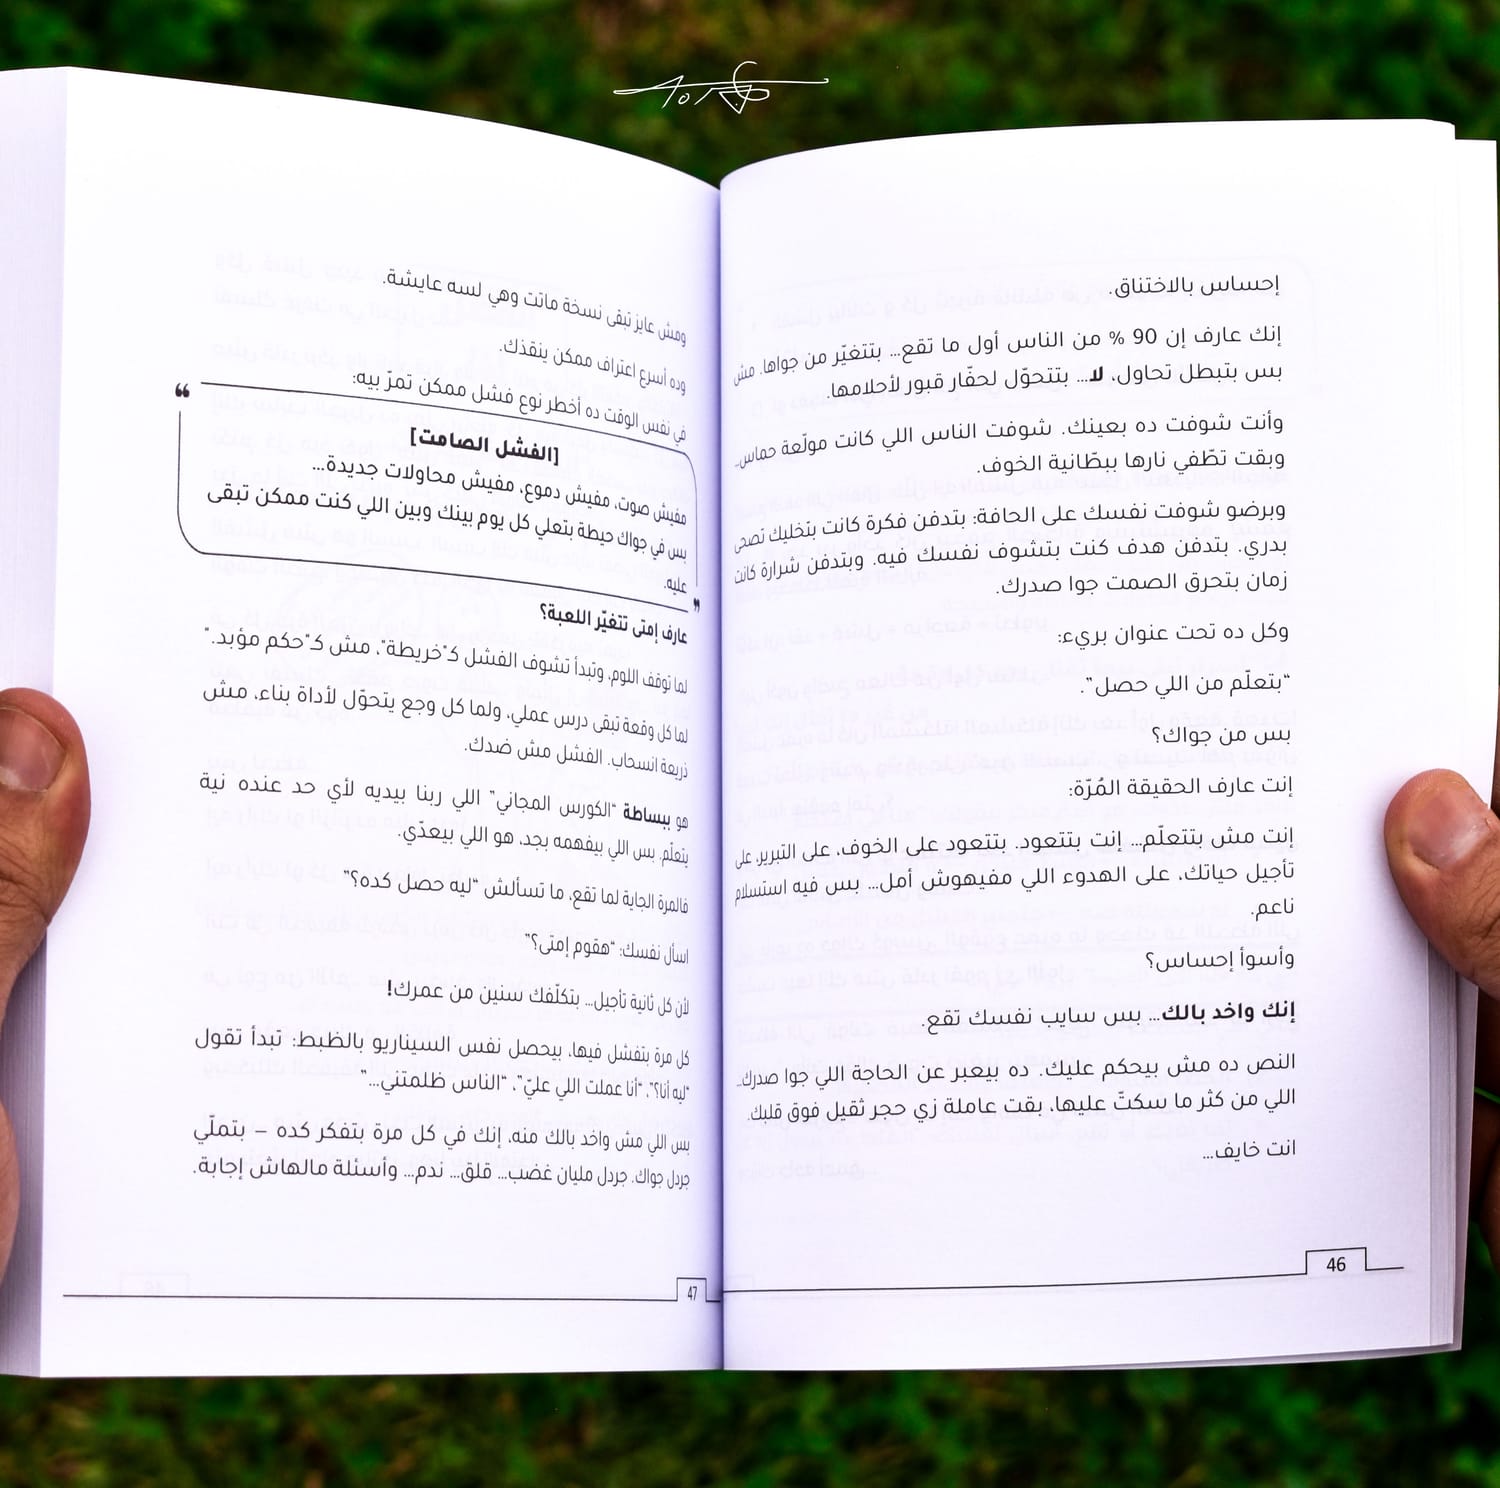 إحساس بالاختناق.
إنك عارف إن 90 % من الناس أول ما تقع... بتتغيّر من جواها. مش
بس بتبطل تحاول، لا... بتتحوّل لحفّار قبور لأحلامها.
وأنت شوفت ده بعينك. شوفت الناس اللي كانت مولّعة حماس..
وبقت تطّفي نارها ببطّانية الخوف.
وبرضو شوفت نفسك على الحافة: بتدفن فكرة كانت بتخليك تصحى
بدري. بتدفن هدف كنت بتشوف نفسك فيه. وبتدفن شرارة كانت
زمان بتحرق الصمت جوا صدرك.
وكل ده تحت عنوان بريء:
"بتعلّم من اللي حصل".
بس من جواك؟
إنت عارف الحقيقة المُرّة:
إنت مش بتتعلّم... إنت بتتعود. بتتعود على الخوف، على التبرير، على
تأجيل حياتك، على الهدوء اللي مفيهوش أمل... بس فيه استسلام
ناعم.
وأسوأ إحساس؟
إنك واخد بالك... بس سايب نفسك تقع.
النص ده مش بيحكم عليك. ده بيعبر عن الحاجة اللي جوا صدرك..
اللي من كثر ما سكتّ عليها، بقت عاملة زي حجر ثقيل فوق قلبك.
انت خايف...
46
ومش عايز تبقى نسخة ماتت وهي لسه عايشة.
وده أسرع اعتراف ممكن ينقذك.
في نفس الوقت ده أخطر نوع فشل ممكن تمرّ بيه:
[الفشل الصامت]
مفيش صوت، مفيش دموع، مفيش محاولات جديدة...
بس في جواك حيطة بتعلي كل يوم بينك وبين اللي كنت ممكن تبقى
عليه.
عارف إمتى تتغيّر اللعبة؟
لما توقف اللوم، وتبدأ تشوف الفشل كـ"خريطة"، مش كـ"حكم مؤبد."
لما كل وقعة تبقى درس عملي، ولما كل وجع يتحوّل لأداة بناء، مش
ذريعة انسحاب. الفشل مش ضدك.
هو ببساطة "الكورس المجاني" اللي ربنا بيديه لأي حد عنده نية
يتعلّم. بس اللي بيفهمه بجد، هو اللي بيعدّي.
فالمرة الجاية لما تقع، ما تسألش "ليه حصل كده؟"
اسأل نفسك: "هقوم إمتى؟"
لأن كل ثانية تأجيل... بتكلّفك سنين من عمرك!
كل مرة بتفشل فيها، بيحصل نفس السيناريو بالظبط: تبدأ تقول
"ليه أنا؟"، "أنا عملت اللي عليّ"، "الناس ظلمتني..."
بس اللي مش واخد بالك منه، إنك في كل مرة بتفكر كده – بتملّي
جردل جواك. جردل مليان غضب... قلق... ندم... وأسئلة مالهاش إجابة.
47